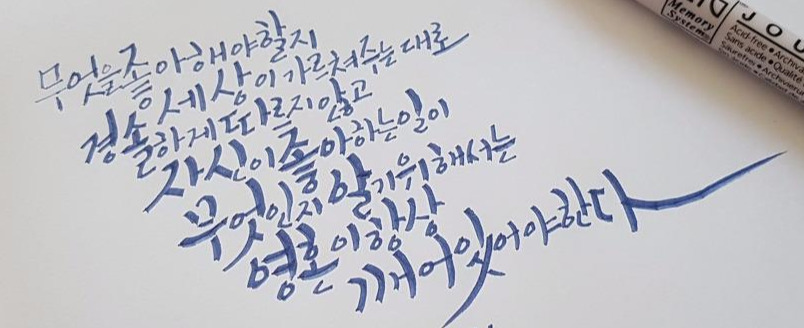 무엇을 좋아해야할지
세상이 가르쳐주는대로
경솔하게 따르지 않고
자신이 좋아하는일이
무엇인지 알기위해서는
영혼이 항상
깨어있어야한다
Memory
System
JOU
Acid-free • Archiv
Sans acide • Qualité
Säurefrei • Archivieru